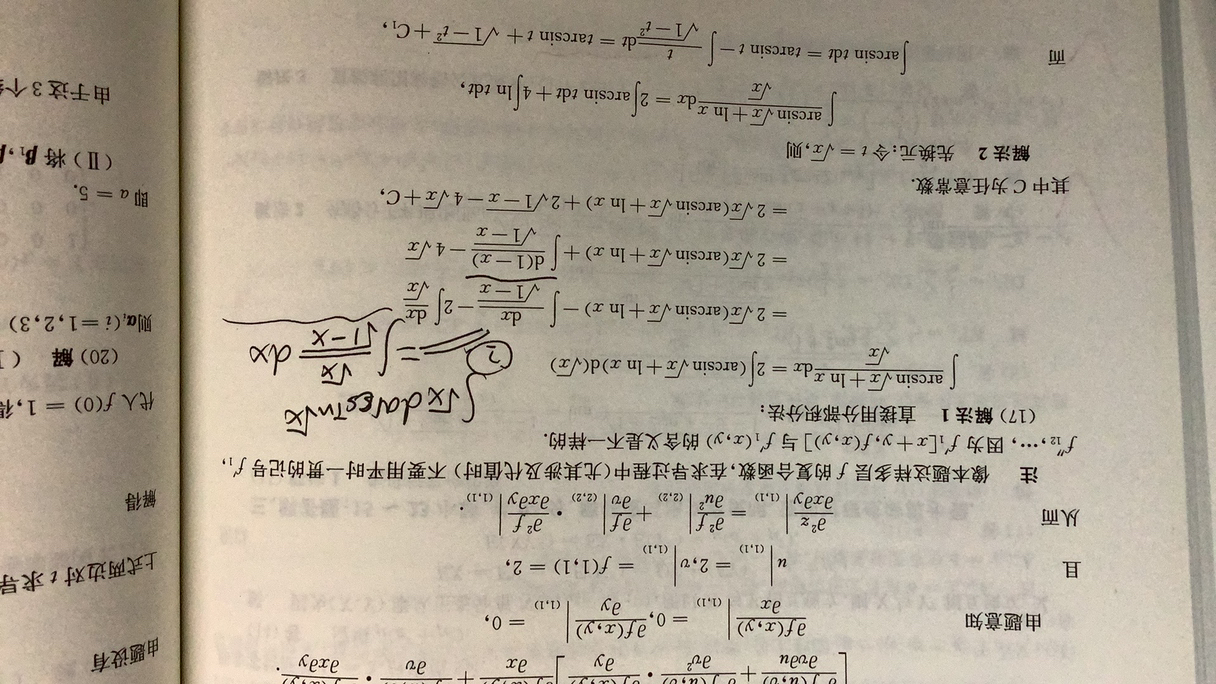 [∂f(u,v)/∂v∂u + ∂f(u,v)/∂v² · ∂f(x,y)/∂y] ∂f(x,y)/∂x + ∂f(u,v)/∂v · ∂f(x,y)/∂x∂y.
由题意知 ∂f(x,y)/∂x|(1,1) = 0, ∂f(x,y)/∂y|(1,1) = 0,
且 u|(1,1) = 2, v|(1,1) = f(1,1) = 2,
从而 ∂²z/∂x∂y|(1,1) = ∂²f/∂u²|(2,2) + ∂f/∂v|(2,2) · ∂²f/∂x∂y|(1,1).
注 像本题这样多层 f 的复合函数,在求导过程中(尤其涉及代值时)不要用平时一贯的记号 f′₁,
f″₁₂,…, 因为 f′₁[x+y,f(x,y)] 与 f′₁(x,y) 的含义是不一样的.
(17) 解法1 直接用分部积分法:
∫√x darcsin√x
∫ (arcsin√x + ln x)/√x dx = 2∫(arcsin√x + ln x)d(√x)
② = ∫ √x/√1-x dx
= 2√x(arcsin√x + ln x) − ∫ dx/√(1−x) − 2∫ dx/√x
= 2√x(arcsin√x + ln x) + ∫ d(1−x)/√(1−x) − 4√x
= 2√x(arcsin√x + ln x) + 2√(1−x) − 4√x + C,
其中 C 为任意常数.
解法2 先换元:令 t = √x,则
∫ (arcsin√x + ln x)/√x dx = 2∫arcsin tdt + 4∫ln tdt,
而 ∫arcsin tdt = tarcsin t − ∫ t/√(1−t²) dt = tarcsin t + √(1−t²) + C₁,
由题设有
上式两边对 t 求导
解得
代入 f(0) = 1,得
(20) 解 (Ⅰ
则αᵢ(i = 1,2,3)
即 a = 5.
(Ⅱ) 将 β₁,β
由于这3个